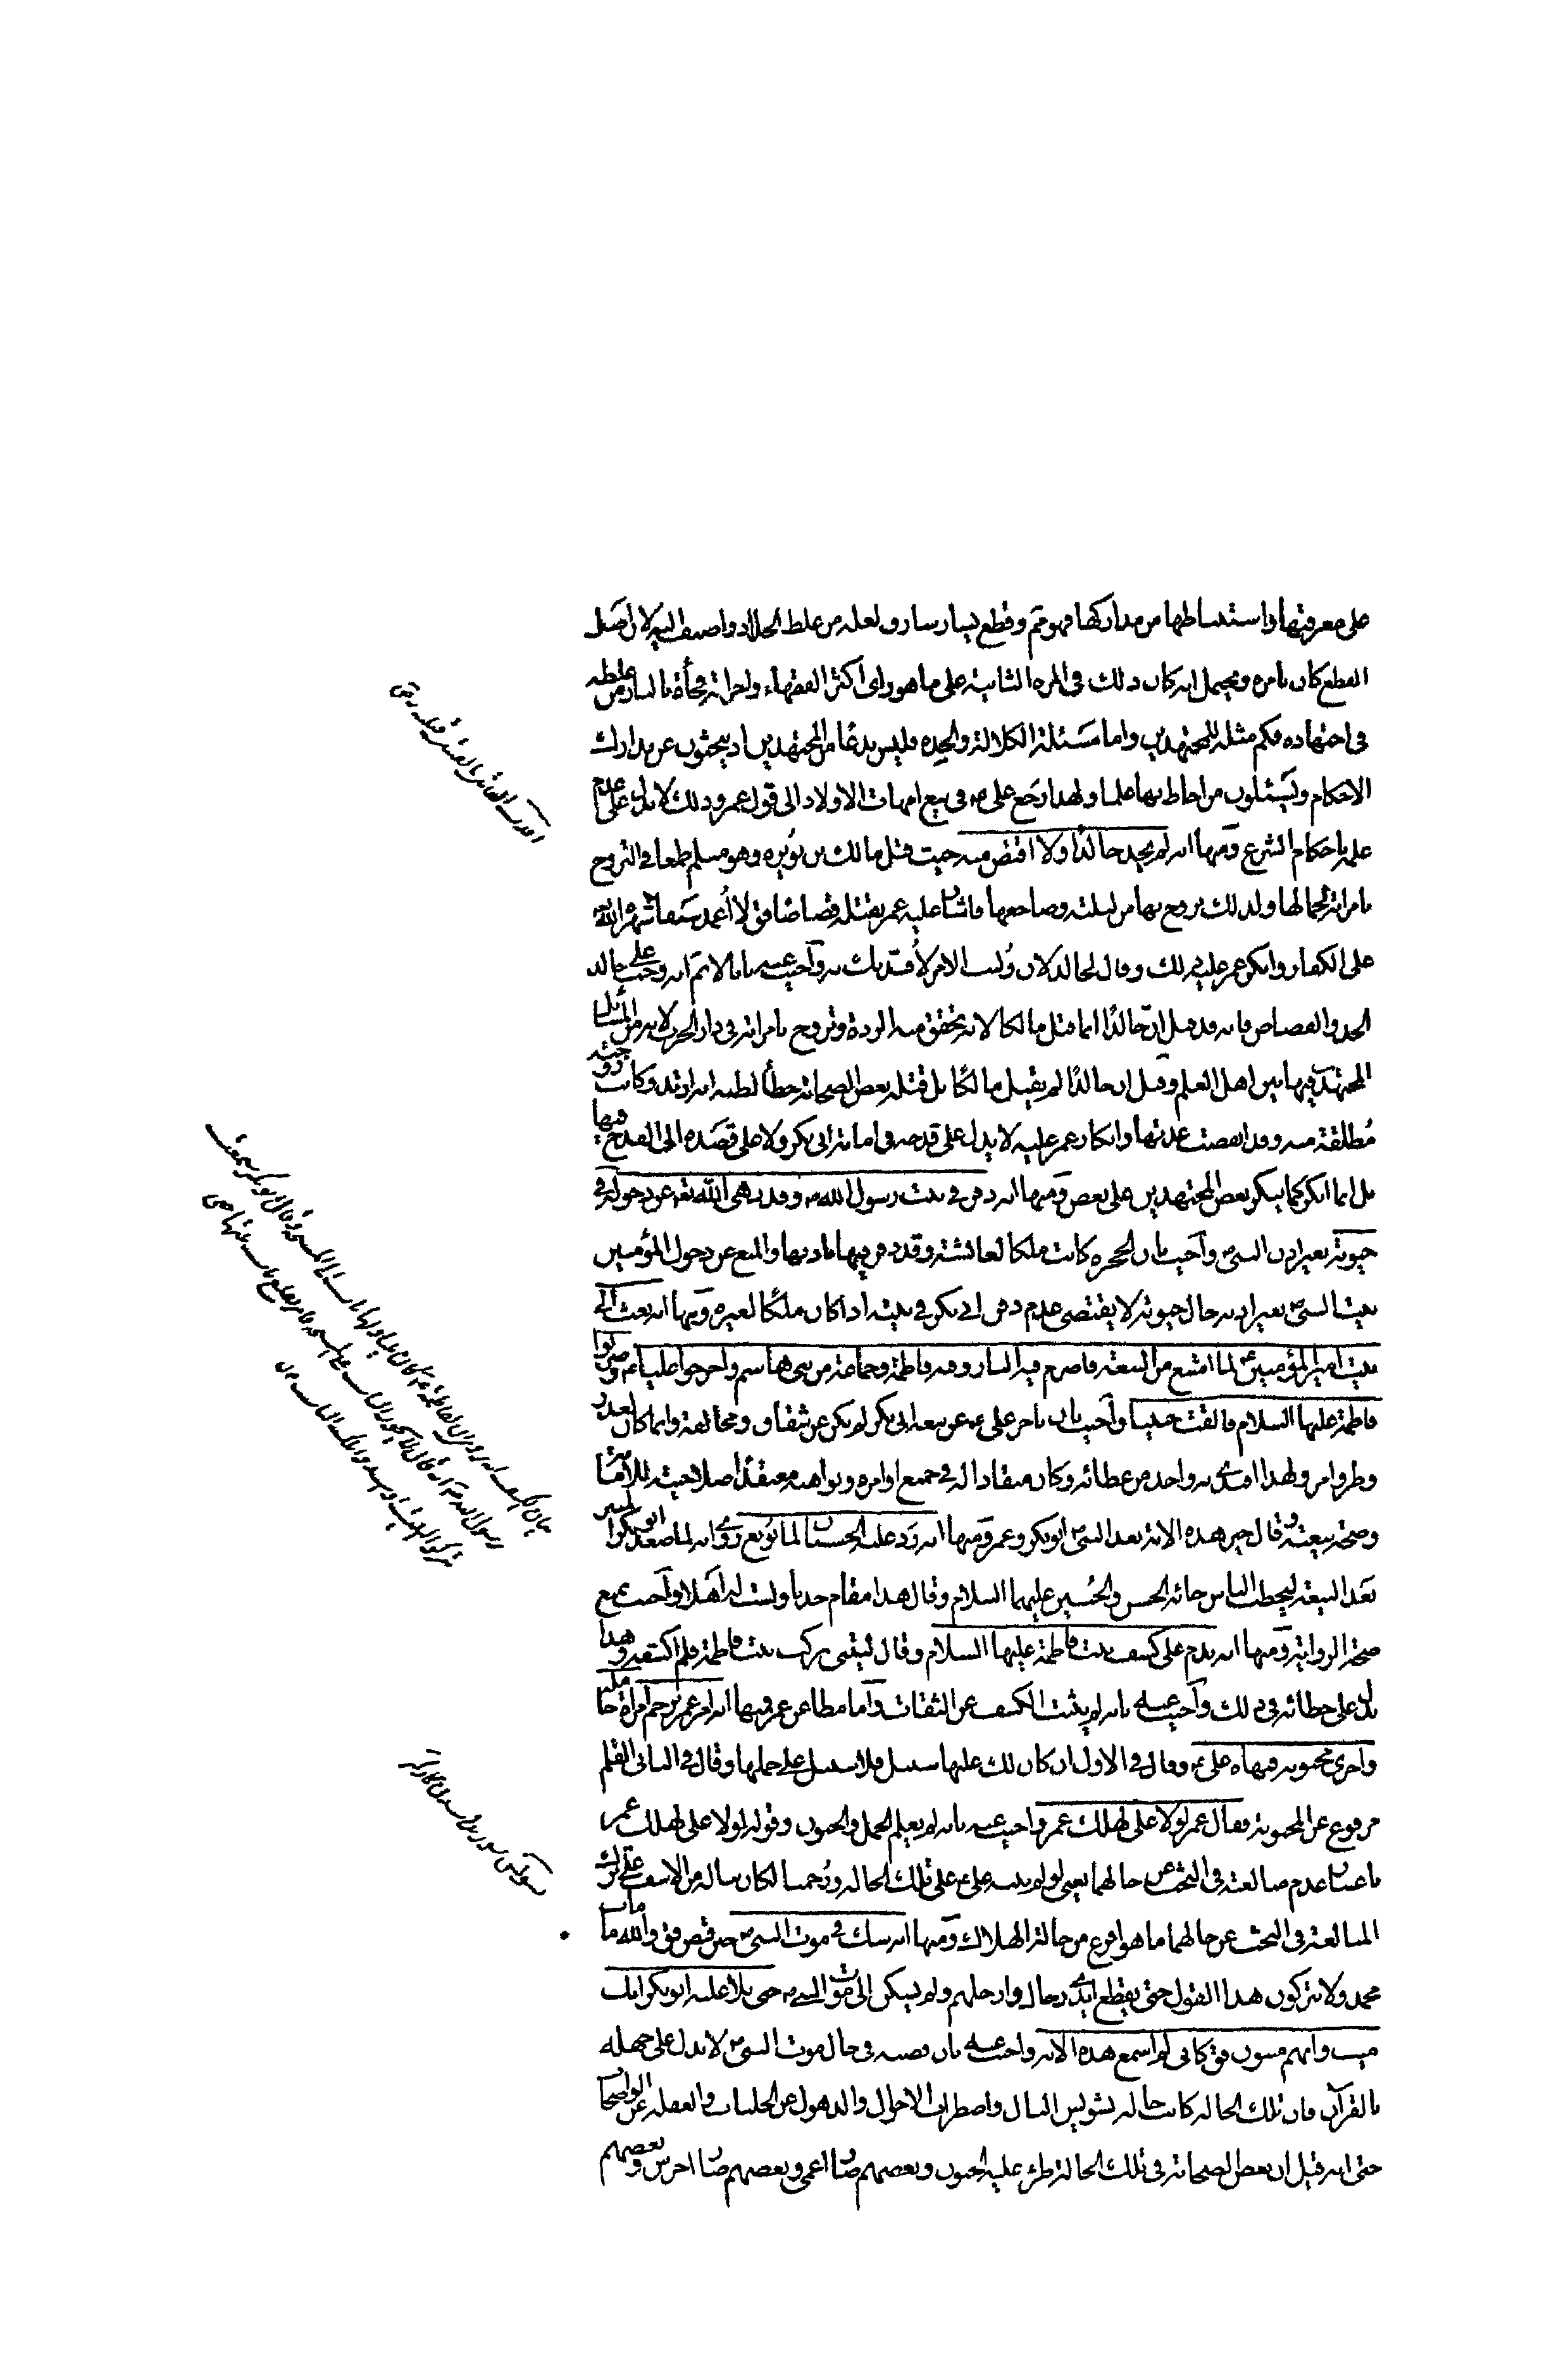 على معرفتها واستنباطها من مداركها فهو ثم وقطع يسار سارق لعله من غلط الجلاد واضيف اليه لان اصل
القطع كان بامره ويحتمل انه كان ذلك فى المرة الثانية على ما هو راى اكثر الفقهاء واحراقه فجأة بالنار من غلطه
فى اجتهاده فكم مثله للمجتهدين واما مسئلة الكلالة والجدة فليس بدعا من المجتهدين اذ يبحثون عن مدارك
الاحكام ويسئلون من احاط بها علما ولهذا رجع على فى بيع امهات الاولاد الى قول عمر وذلك لا يدل على عدم
علمه باحكام الشرع ومنها انه لم يحد خالدا ولا اقتص منه حيث قتل مالك بن نويرة وهو مسلم طمعا فى التزوج
بامراته لجمالها ولذلك تزوج بها من ليلته وضاجعها فاشار عليه عمر بقتله قصاصا فق لا اغمد سيفا شهره الله
على الكفار وانكر عمر عليه ذلك وقال لخالد لان وليت الامر لأقيدنك به وأجيب عنه بانا لا نم انه وجب على خالد
الحد والقصاص فانه قد قيل ان خالدا انما قتل مالكا لانه تحقق منه الردة وتزوج بامراته فى دار الحرب لانه من المسائل
المجتهد فيها بين اهل العلم وقيل ان خالدا لم يقتل مالكا بل قتله بعض الصحابة خطأ لظنه انه ارتد وكانت زوجته
مطلقة منه وقد انقضت عدتها وانكار عمر عليه لا يدل على قدحه فى امامة ابى بكر ولا على قصده الى القدح فيها
بل انما انكر كما ينكر بعض المجتهدين على بعض ومنها انه دفن فى بيت رسول الله وقد نهى الله تعه عن دخوله فى
حيوته بغير اذن النبى وأجيب بان الحجرة كانت ملكا لعائشة وقد دفن فيها باذنها والمنع عن دخول المؤمنين
بيت النبى بغير اذنه حال حيوته لا يقتضى عدم دفن ابى بكر فى بيته اذا كان ملكا لغيره ومنها انه بعث الى
بيت امير المؤمنين لما امتنع من البيعة فاضرم فيه النار وفيه فاطمة وجماعة من بنى هاشم واخرجوا عليا وضربوا
فاطمة عليها السلام فالقت جنينا وأجيب بان تاخر على عن بيعة ابى بكر لم يكن عن شقاق ومخالفة وانما كان لعذر
وطرو امر ولهذا اقتدى به واخذ من عطائه وكان منقادا له فى جميع اوامره ونواهيه معتقدا صلاحيته للامامة
وصحة بيعته وقال خير هذه الامة بعد النبى ابو بكر وعمر ومنها انه رد عليه الحسنان لما بويع روى انه لما صعد ابو بكر المنبر
بعد البيعة ليخطب الناس جائه الحسن والحسين عليهما السلام وقال هذا مقام جدنا ولست له اهلا وأجيب بمنع
صحة الرواية ومنها انه ندم على كشف بيت فاطمة عليها السلام وقال ليتنى تركت بيت فاطمة فلم اكشفه وهذا
يدل على خطائه فى ذلك وأجيب عنه بانه لم يثبت الكشف عن الثقات وأما مطاعن عمر فمنها انه امر عمر برجم امراة حامل
واخرى مجنونة فنهاه على وقال فى الاول ان كان لك عليها سبيل فلا سبيل على حملها وقال فى الثانى القلم
مرفوع عن المجنونة فقال عمر لولا على لهلك عمر واجيب عنه بانه لم يعلم الحمل والجنون وقوله لولا على لهلك عمر
باعتبار عدم مبالغته فى البحث عن حالهما يعنى لو لم ينبه على على تلك الحالة ورجمتا لكان يناله من الاسف على ترك
المبالغة فى البحث عن حالهما ما هو اقرع من حالة الهلاك ومنها انه شك فى موت النبى حين قبض فق والله ما مات
محمد ولا تتركون هذا القول حتى يقطع ايدى رجال وارجلهم ولم يسكن الى موت النبى حتى تلا عليه ابو بكر انك
ميت وانهم ميتون فق كانى لم اسمع هذه الاية واجيب عنه بان قصته فى حال موت النبى لا يدل على جهله
بالقرآن فان تلك الحالة كانت حالة تشويش البال واضطراب الاحوال والذهول عن الجليات والغفلة عن الواضحات
حتى انه قيل ان بعض الصحابة فى تلك الحالة طرء عليه الجنون وبعضهم صار اعمى وبعضهم صار اخرس وبعضهم